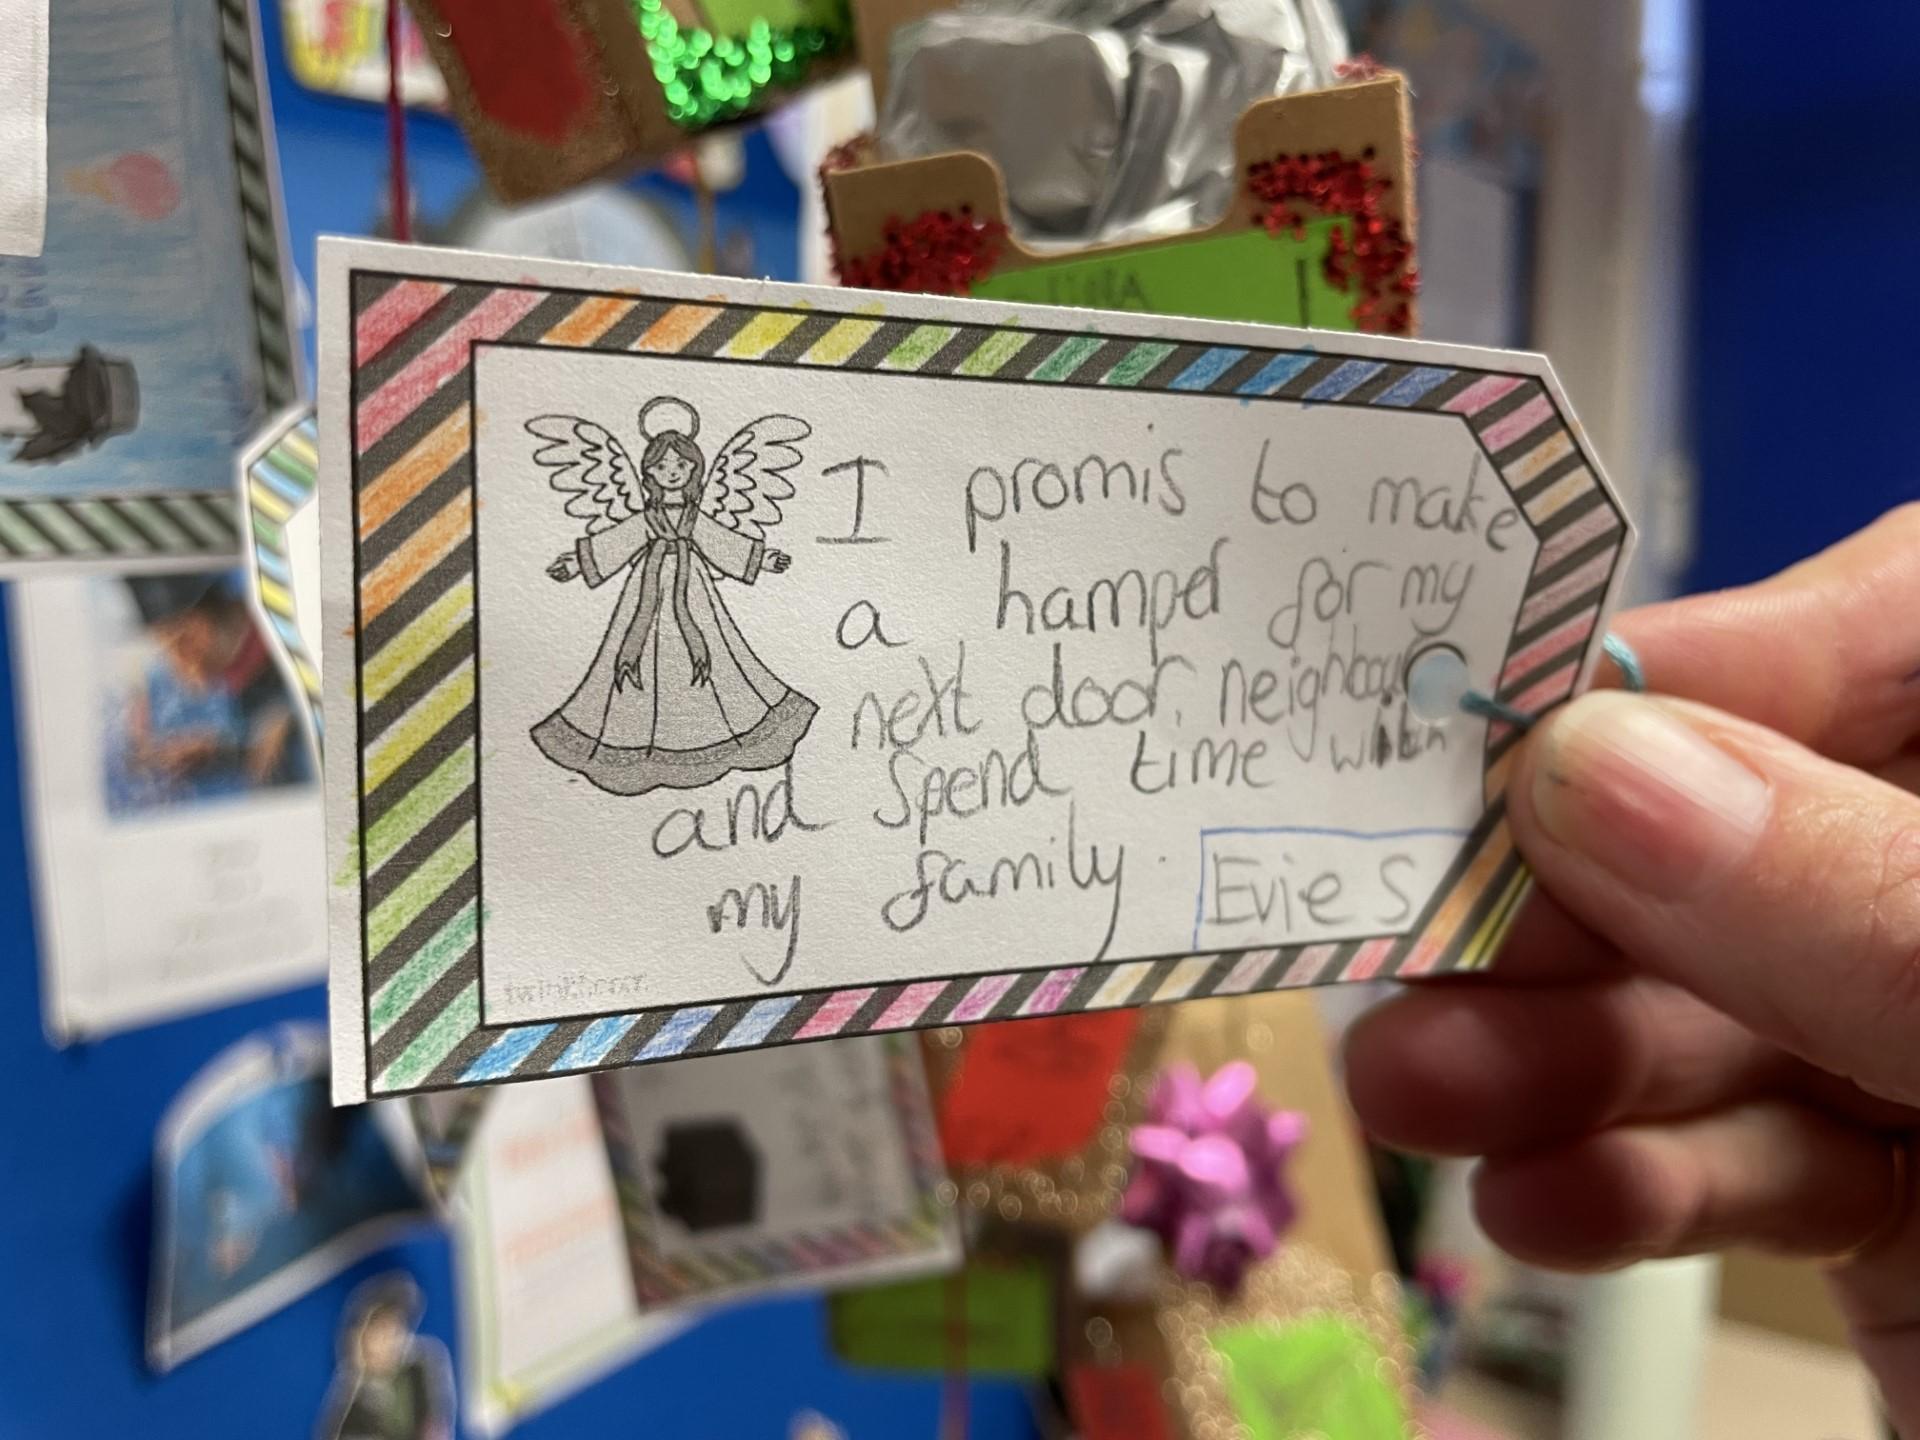 I promis to make
a hamper for my
next door neighbour
and spend time
my family.
Evie S
twinkl.com